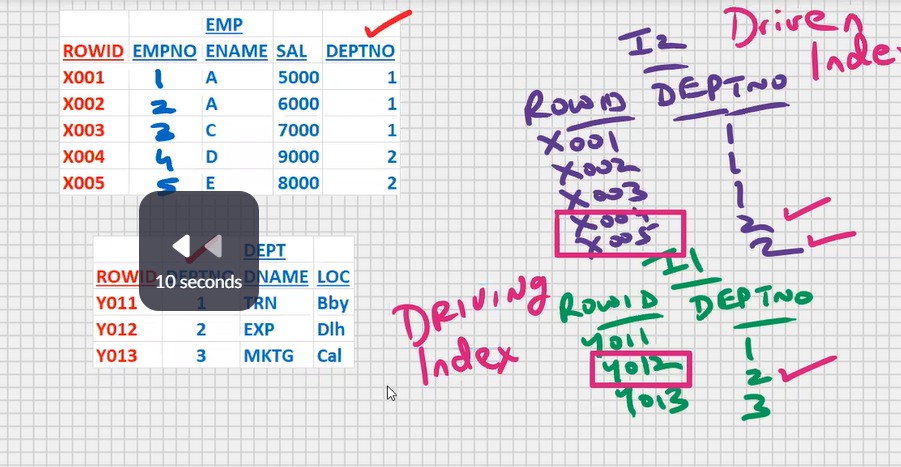 EMP
ROWID EMPNO ENAME SAL DEPTNO
X001 1 A 5000 1
X002 2 A 6000 1
X003 3 C 7000 1
X004 4 D 9000 2
X005 5 E 8000 2
DEPT
ROWID DEPTNO DNAME LOC
Y011 1 TRN Bby
Y012 2 EXP Dlh
Y013 3 MKTG Cal
10 seconds
Driven
Index
I2
ROWID DEPTNO
X001 1
X002 1
X003 1
X004 2
X005 2
DRIVING
Index
I1
ROWID DEPTNO
Y011 1
Y012 2
Y013 3